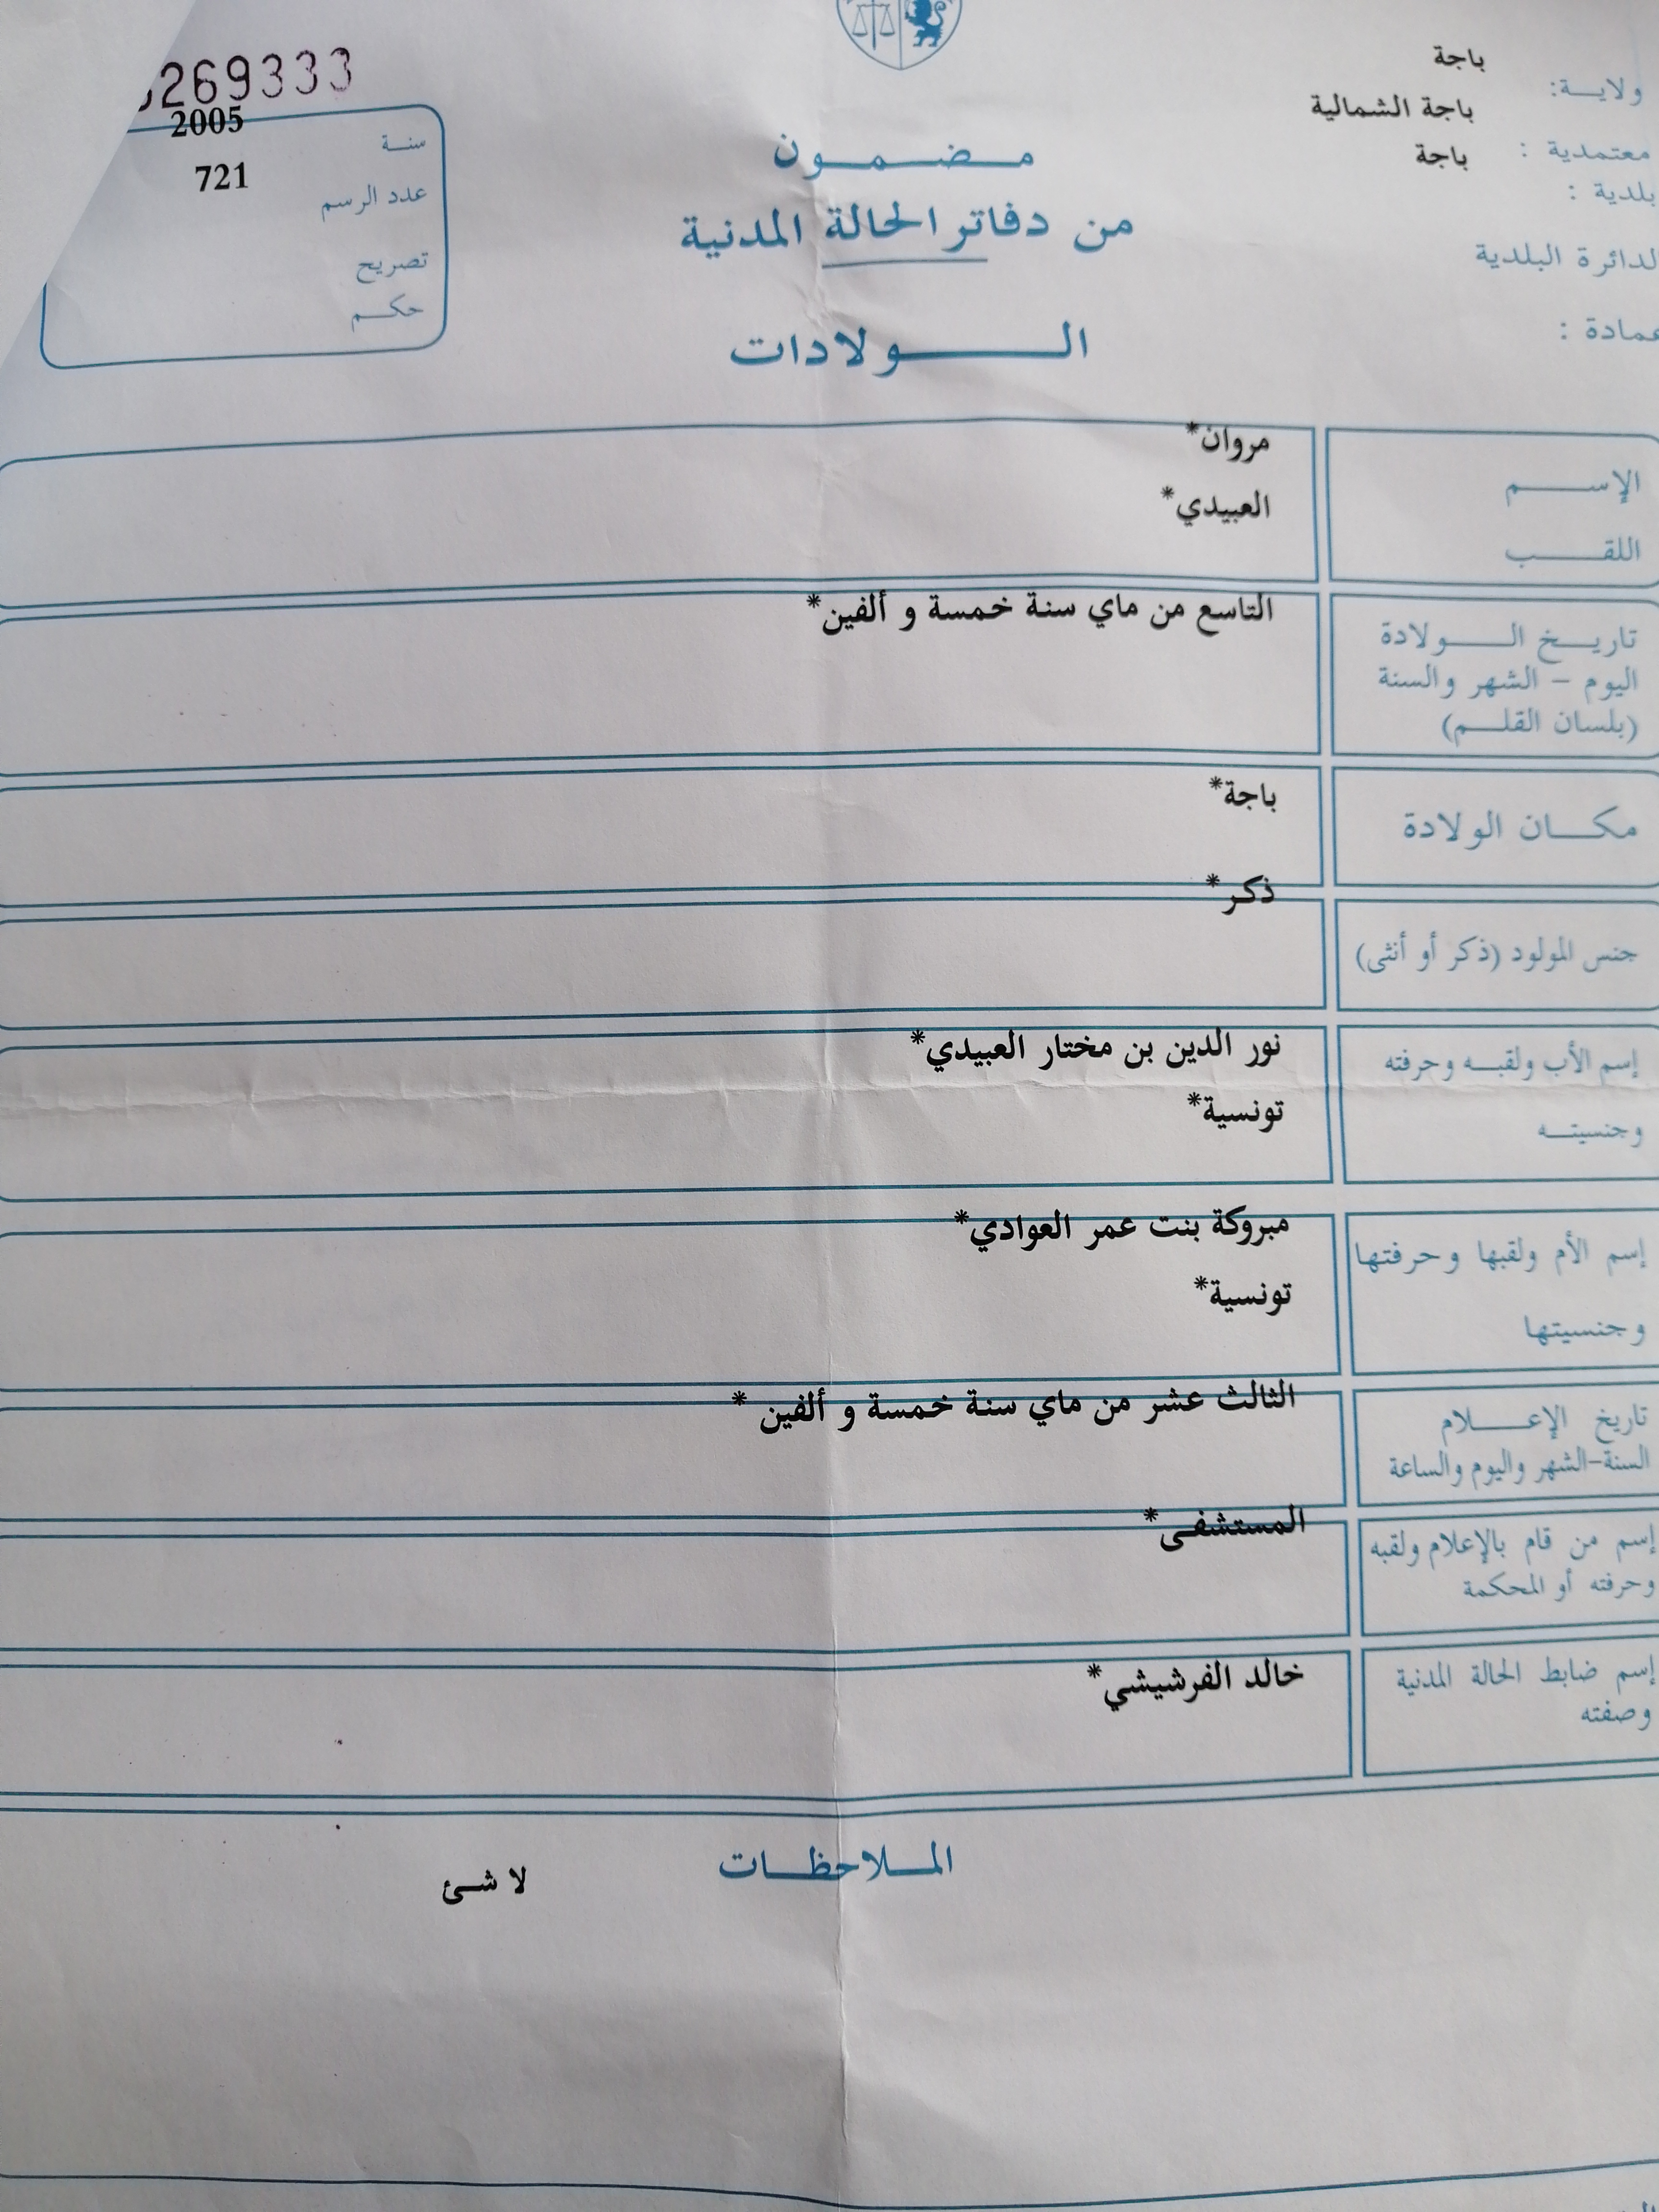 269333
باجة
ولايـــة:
2005
سنــة
باجة الشمالية
معتمدية :
721
عدد الرسم
باجة
بلدية :
مـــضـــمـــون
من دفاتر الحالة المدنية
تصريح
الدائرة البلدية
حكـــم
عمادة :
الـــــولادات
الإســـــم
مروان*
اللقـــــب
العبيدي*
تاريـــخ الـــــولادة
اليوم - الشهر والسنة
(بلسان القلـــم)
التاسع من ماي سنة خمسة و ألفين*
مكـــان الولادة
باجة*
جنس المولود (ذكر أو أنثى)
ذكر*
إسم الأب ولقبـــه وحرفته
نور الدين بن مختار العبيدي*
وجنسيتـــه
تونسية*
إسم الأم ولقبها وحرفتها
مبروكة بنت عمر العوادي*
وجنسيتها
تونسية*
تاريخ الإعـــــلام
السنة-الشهر واليوم والساعة
الثالث عشر من ماي سنة خمسة و ألفين *
إسم من قام بالإعلام ولقبه
وحرفته أو المحكمة
المستشفى*
إسم ضابط الحالة المدنية
وصفته
خالد الفرشيشي*
المـــلاحظـــات
لا شئ